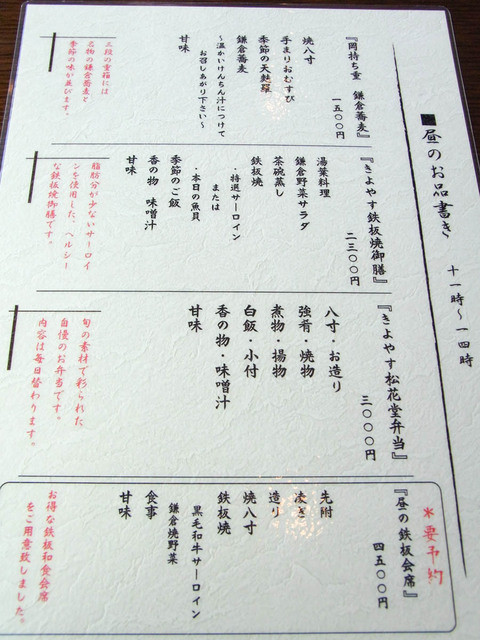 ■昼のお品書き
十一時～一四時
『岡持ち重 鎌倉蕎麦』
一五〇〇円
焼八寸
手まりおむすび
季節の天麩羅
鎌倉蕎麦
～温かいけんちん汁につけて
お召しあがり下さい～
甘味
三段の重箱には
名物の鎌倉蕎麦と
季節の味が並びます。
『きよやす鉄板焼御膳』
二三〇〇円
湯葉料理
鎌倉野菜サラダ
茶碗蒸し
鉄板焼
・特選サーロイン
または
・本日の魚貝
季節のご飯
香の物 味噌汁
甘味
脂肪分が少ないサーロイ
ンを使用した、ヘルシー
な鉄板焼御膳です。
『きよやす松花堂弁当』
三〇〇〇円
八寸・お造り
強肴・焼物
煮物・揚物
白飯・小付
香の物・味噌汁
甘味
旬の素材で彩られた
自慢のお弁当です。
内容は毎日替わります。
＊要予約
『昼の鉄板会席』
四五〇〇円
先附
凌ぎ
造り
焼八寸
鉄板焼
黒毛和牛サーロイン
鎌倉焼野菜
食事
甘味
お得な鉄板和食会席
をご用意致しました。